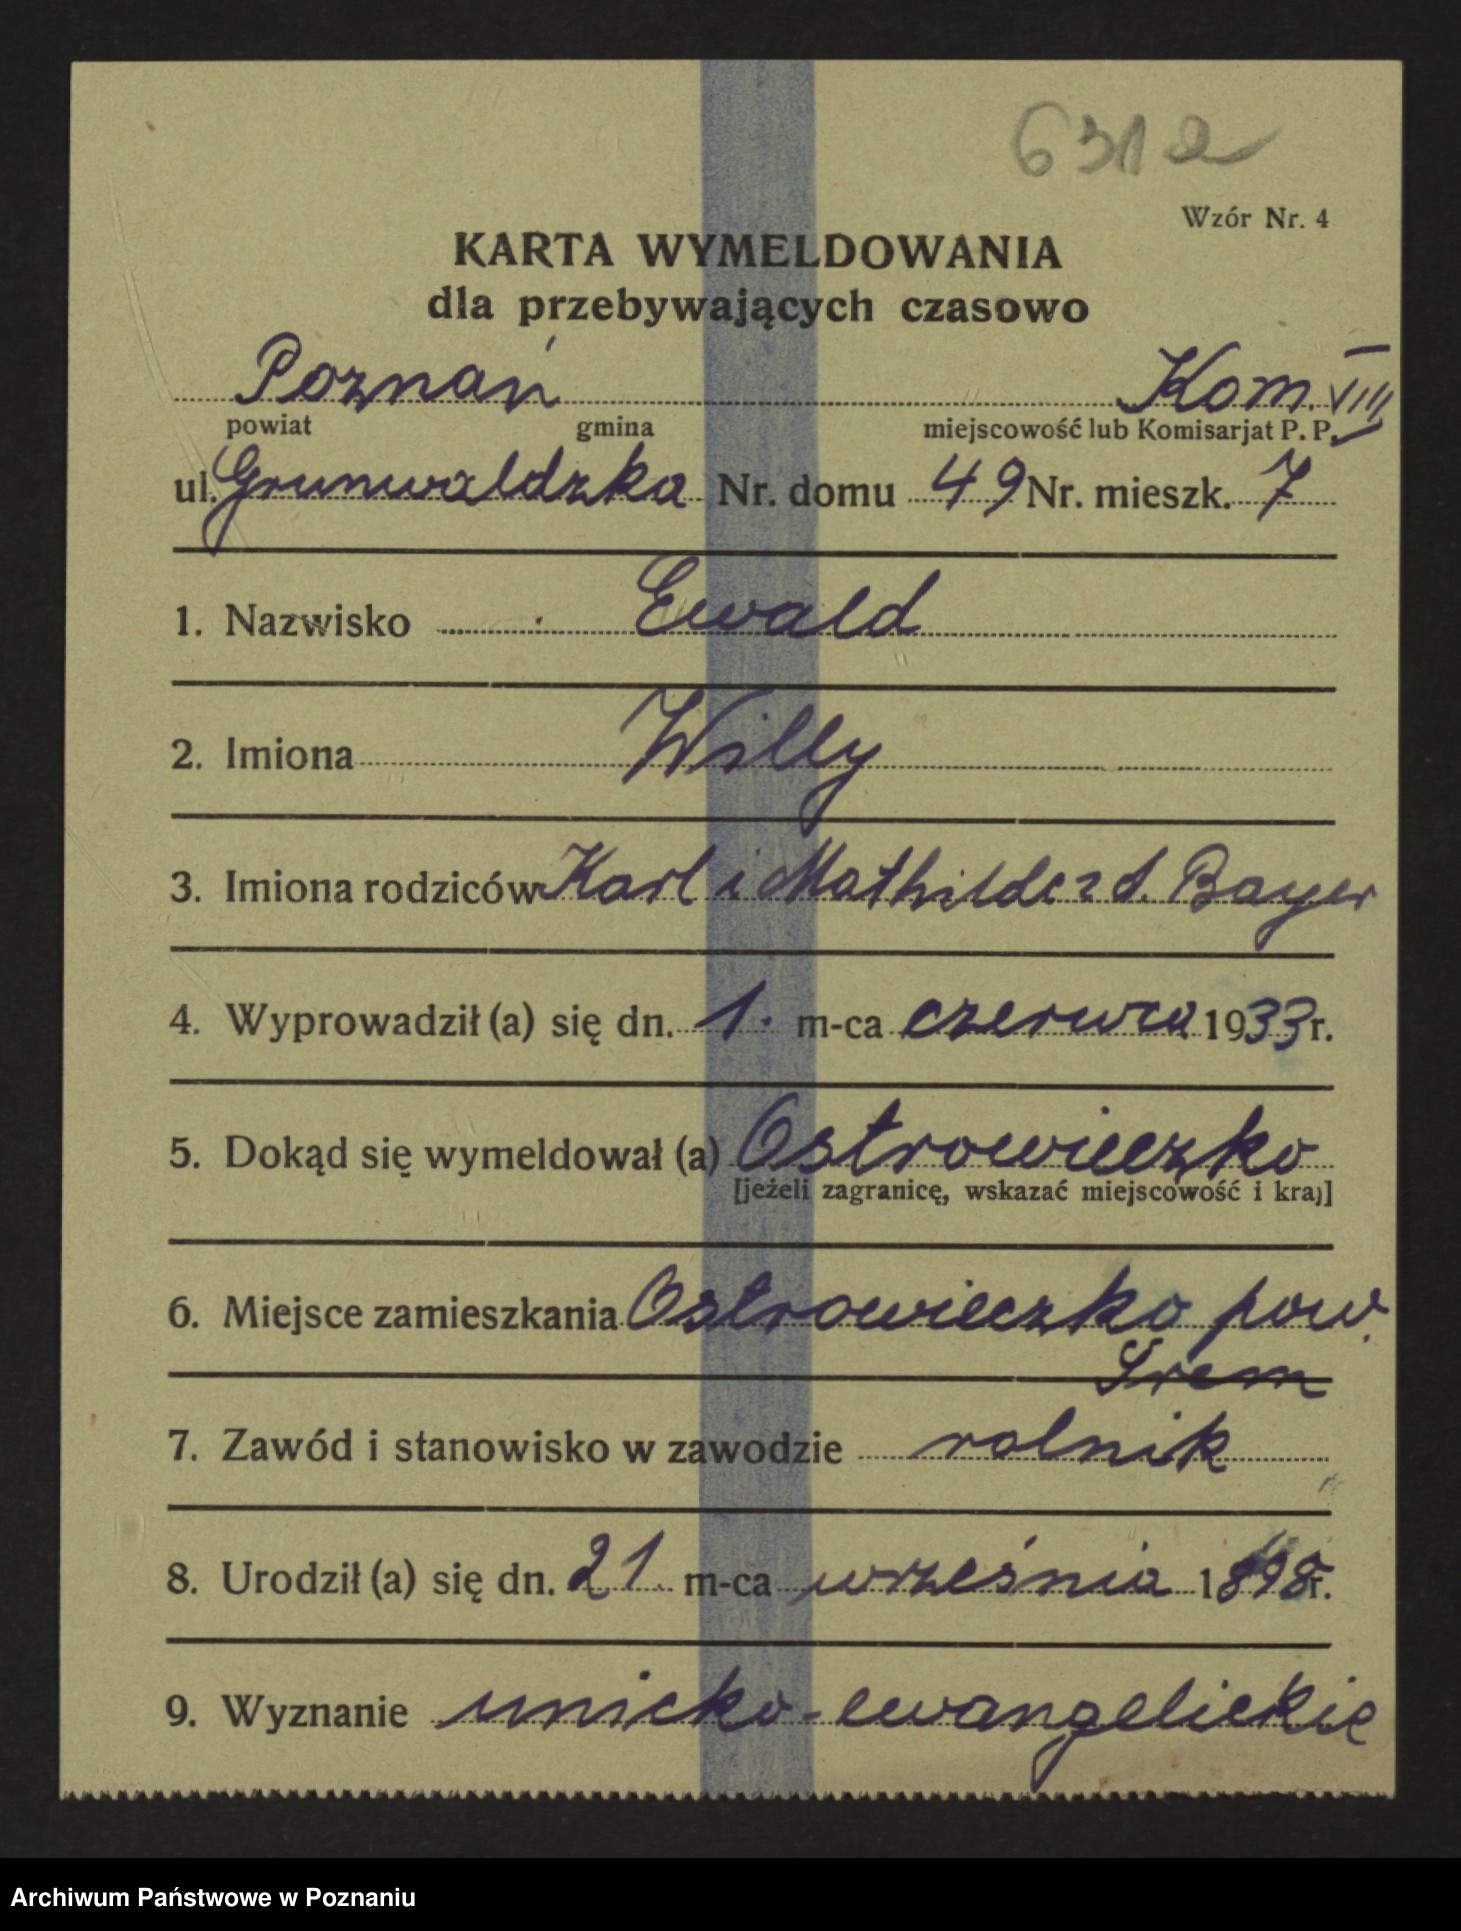 6312
Wzór Nr. 4
KARTA WYMELDOWANIA
dla przebywających czasowo
Poznań Kom. VIII
powiat gmina miejscowość lub Komisarjat P. P.
ul. Grunwaldzka Nr. domu 49 Nr. mieszk. 7
1. Nazwisko Ewald
2. Imiona Willy
3. Imiona rodziców Karl i Mathilde z d. Bayer
4. Wyprowadził (a) się dn. 1. m-ca czerwca 1933 r.
5. Dokąd się wymeldował (a) Ostrowieczko
[jeżeli zagranicę, wskazać miejscowość i kraj]
6. Miejsce zamieszkania Ostrowieczko pow.
Śrem
7. Zawód i stanowisko w zawodzie rolnik
8. Urodził (a) się dn. 21 m-ca września 1898 r.
9. Wyznanie unicko-ewangelickie
Archiwum Państwowe w Poznaniu